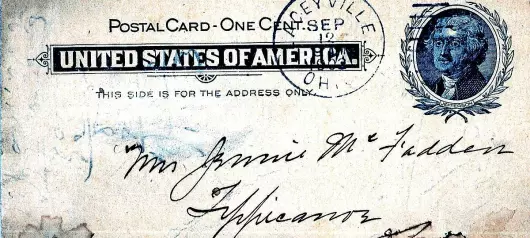 POSTAL CARD - ONE CENT.
SEP
12
OH
UNITED STATES OF AMERICA.
THIS SIDE IS FOR THE ADDRESS ONLY.
Jennie McFadden
Tippicanoe